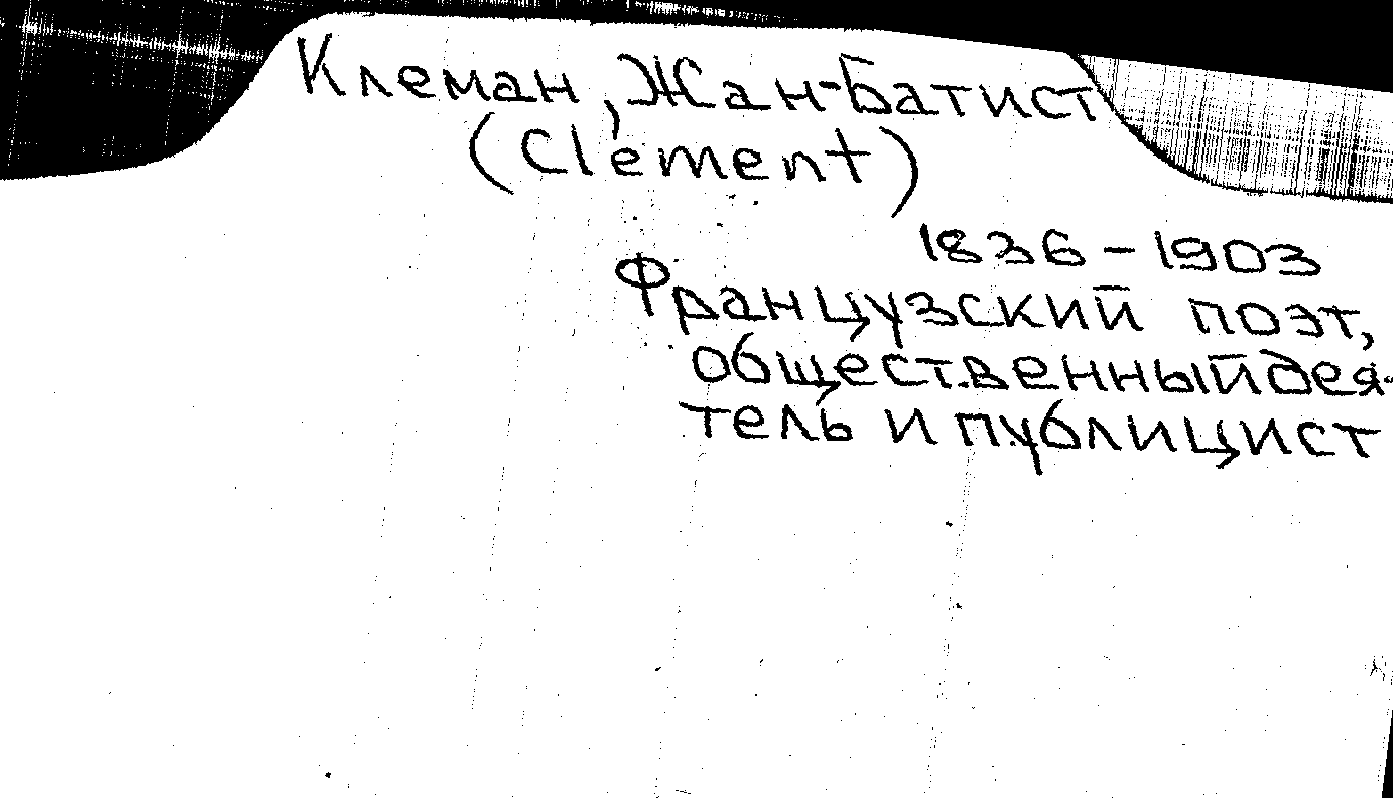 Клеман, Жан-Батист
(Clément)
1836-1903
Французский поэт,
общественный дея-
тель и публицист